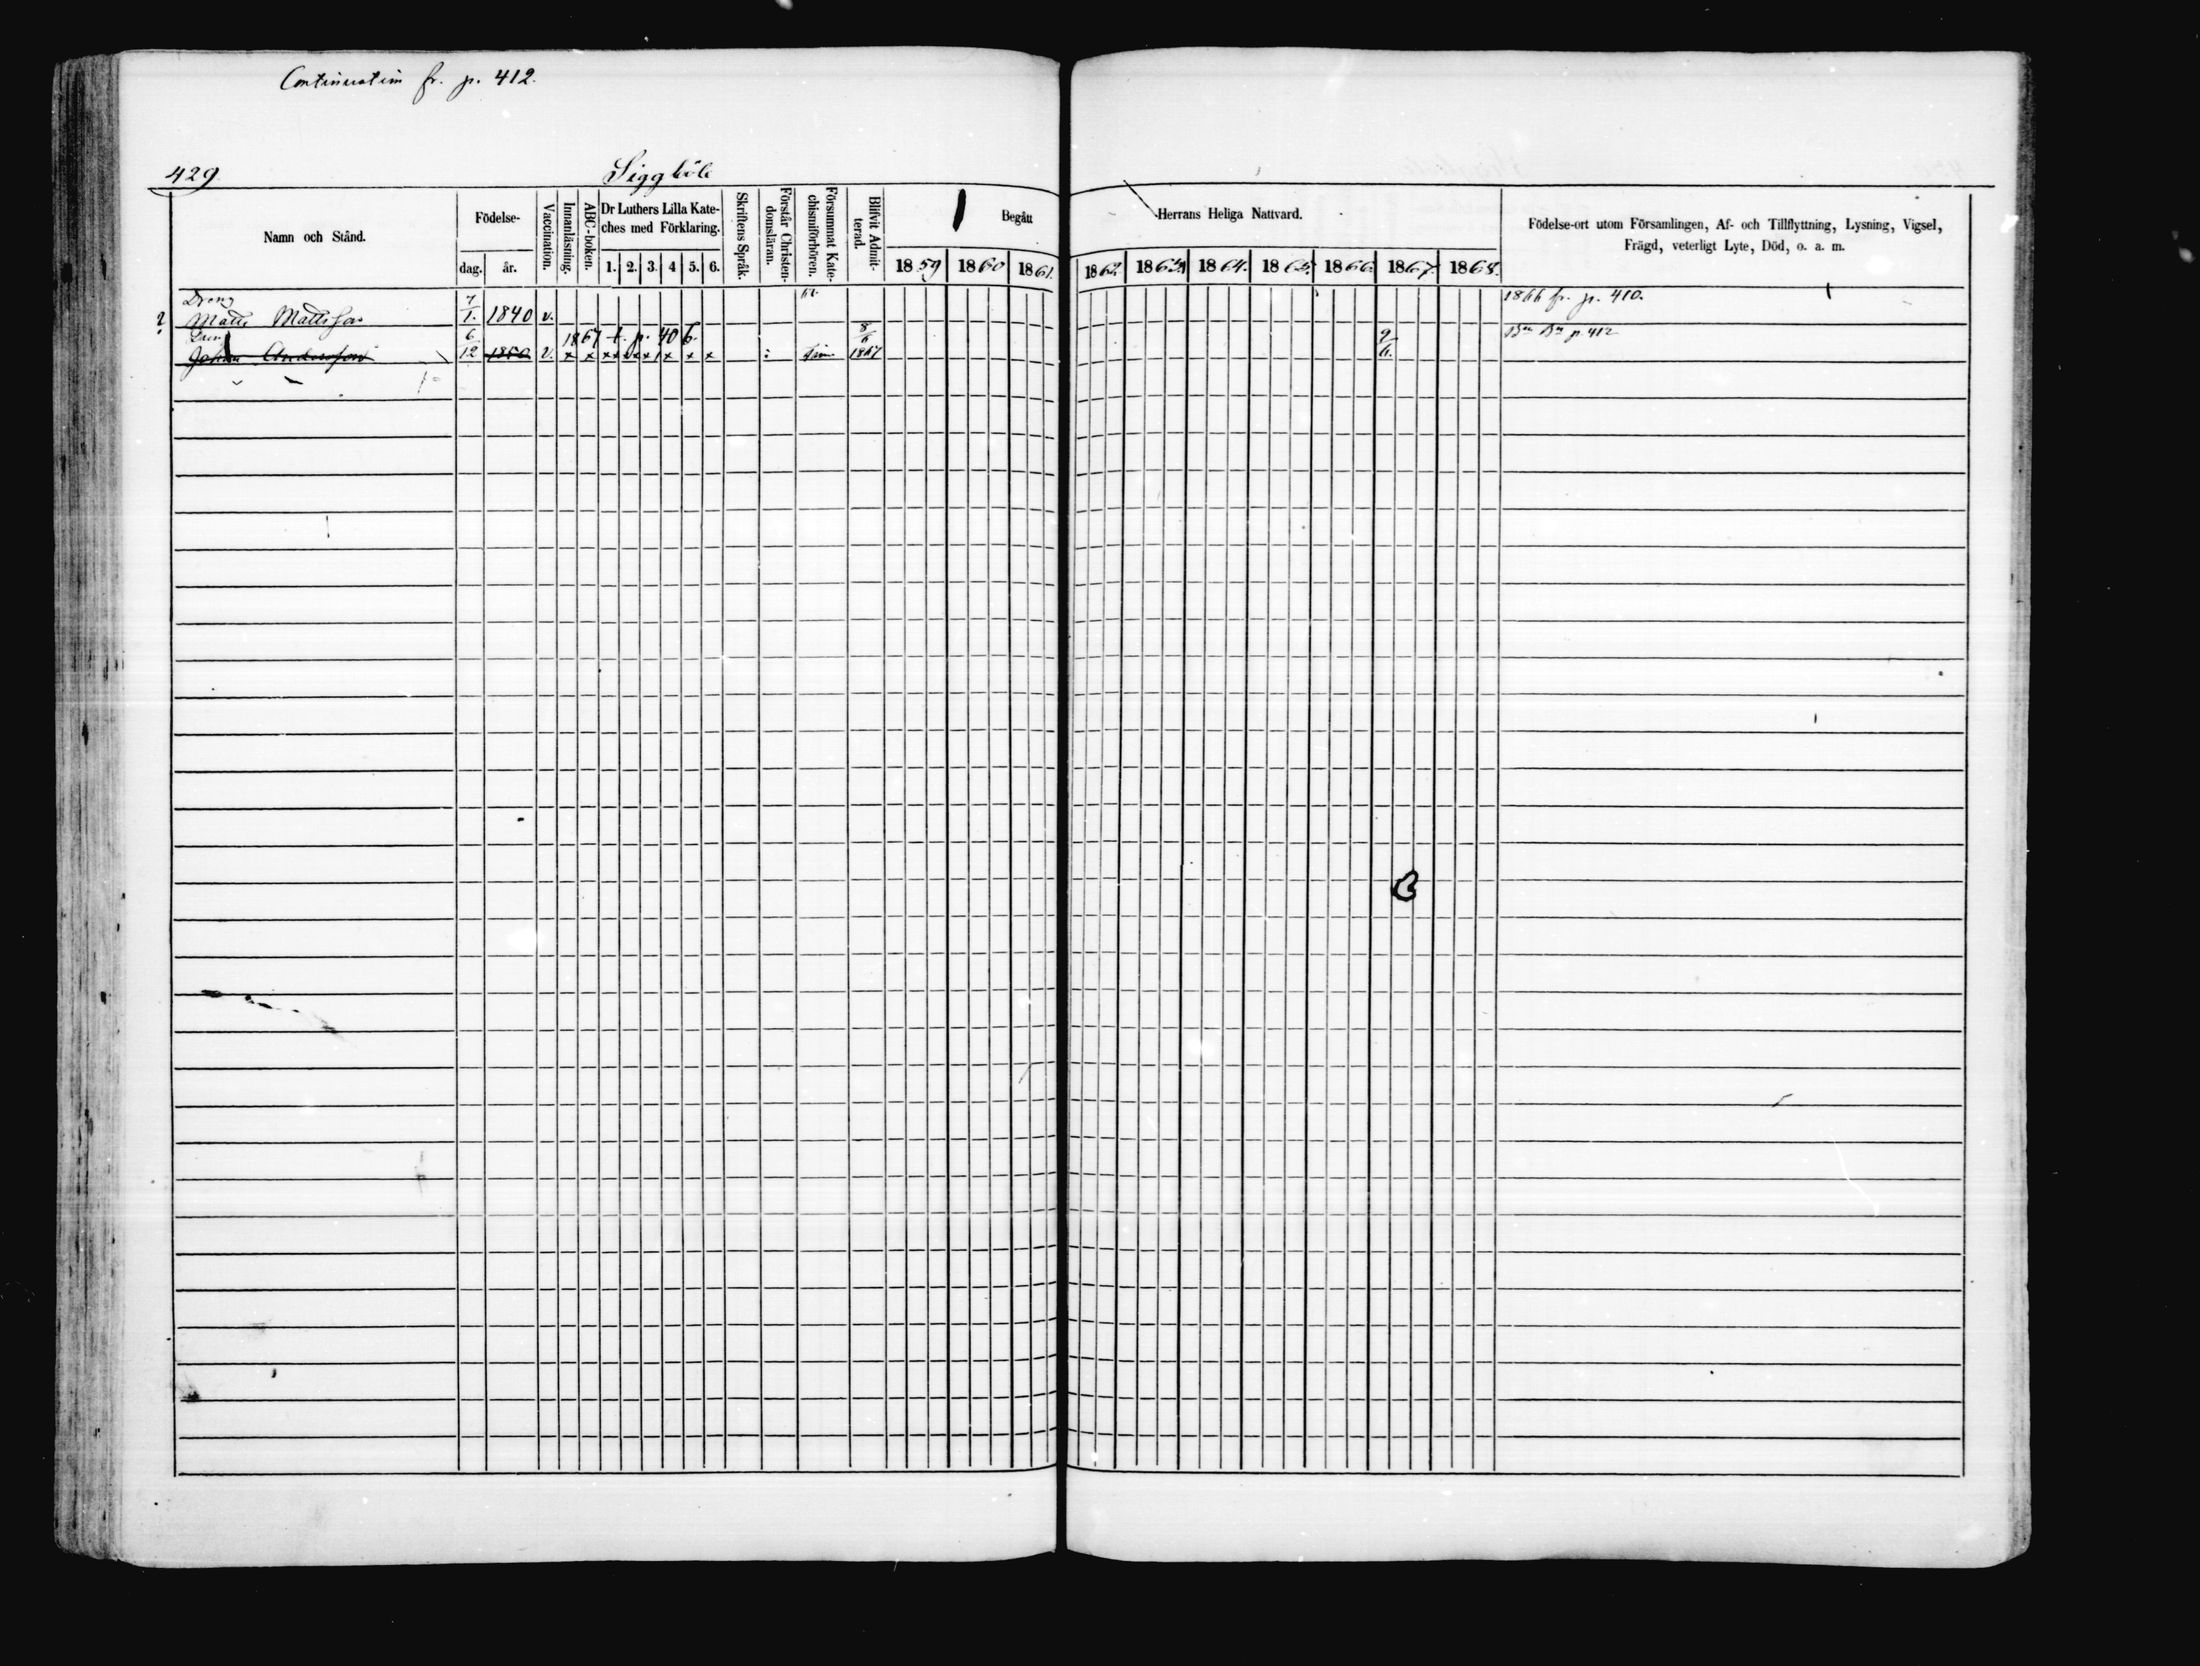 Continuation fr. p. 412.
429
Siggböle
Namn och Stånd.
Födelse-
dag.
år.
Vaccination.
Innanläsning.
ABC-boken.
Dr Luthers Lilla Kate-
ches med Förklaring.
1. 2. 3. 4 5. 6.
Skriftens Språk.
Förstår Christen-
domsläran.
Försummat Kate-
chismiförhören.
Blifvit Admit-
terad.
Begått
Herrans Heliga Nattvard.
1859 1860 1861. 1862. 1863. 1864. 1865. 1866. 1867. 1868.
Födelse-ort utom Församlingen, Af- och Tillflyttning, Lysning, Vigsel,
Frägd, veterligt Lyte, Död, o. a. m.
Dreng 7 1866 fr. p. 410.
? Matts Mattsson 1. 1840 v.
Dreng 6 1867 t. p. 406. 8/6 9 p 412
Johan Andersson 12 1850 v. x x x x x x x x x 1867 6.